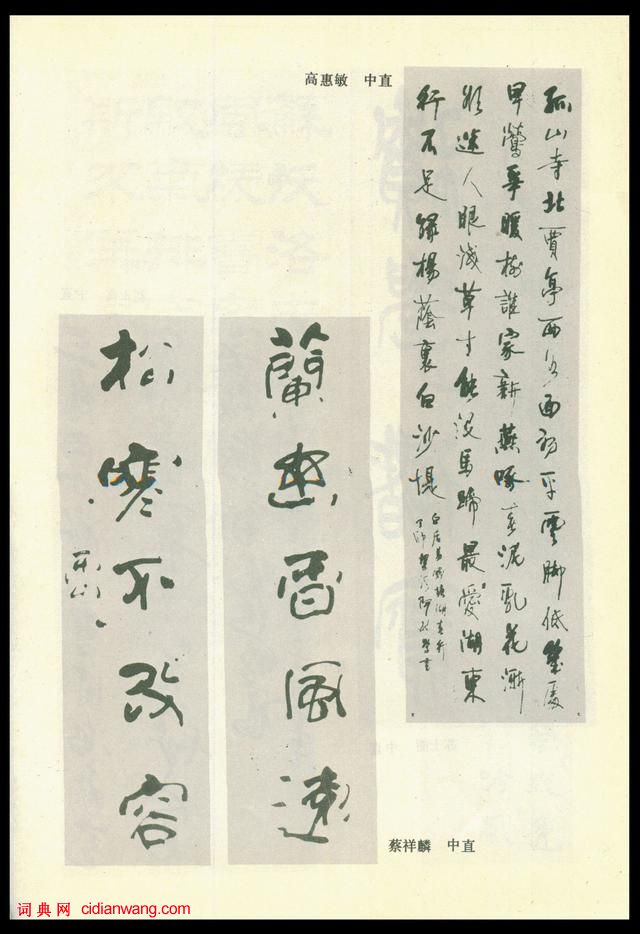 高惠敏 中直
孤山寺北賈亭西水面初平雲脚低幾處
早鶯爭暖樹誰家新燕啄春泥乱花漸
欲迷人眼淺草才能没馬蹄最愛湖東
行不足綠楊蔭裏白沙堤
白居易錢塘湖春行
蘭幽香風遠
松寒不改容
蔡祥麟 中直
词典网 cidianwang.com